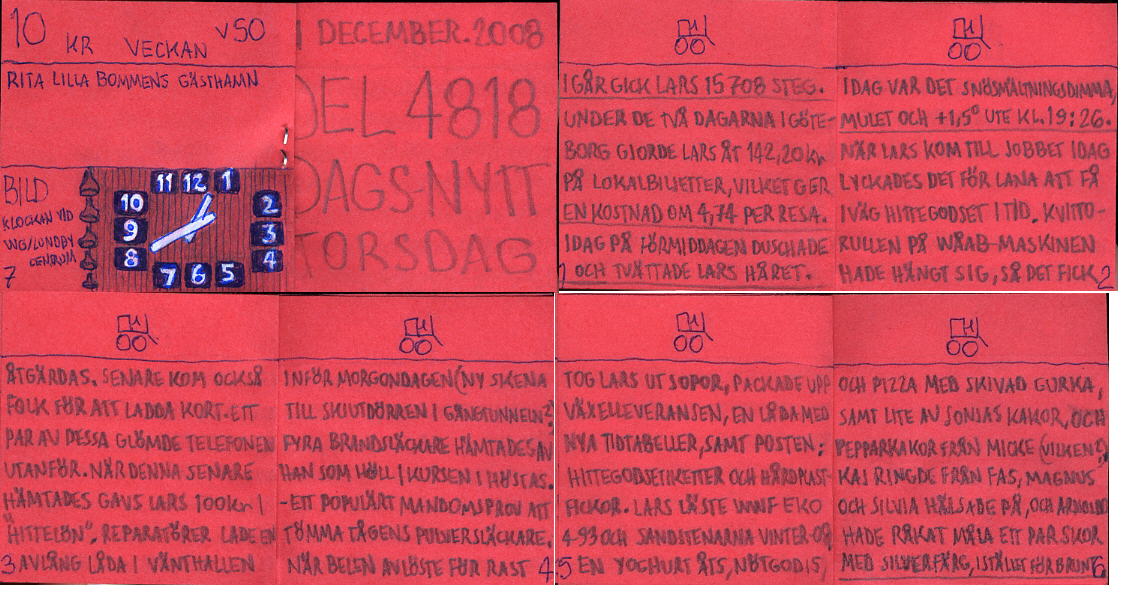 10 KR VECKAN V50
RITA LILLA BOMMENS GÄSTHAMN
BILD
KLOCKAN VID
WG/LUNDBY
CENTRUM
7
11 12 1
10 2
9 3
8 4
7 6 5
1 DECEMBER.2008
DEL 4818
DAGS-NYTT
TORSDAG
I GÅR GICK LARS 15 708 STEG.
UNDER DE TVÅ DAGARNA I GÖTE-
BORG GJORDE LARS ÅT 142,20 kr
PÅ LOKALBILJETTER, VILKET GER
EN KOSTNAD OM 4,74 PER RESA.
IDAG PÅ FÖRMIDDAGEN DUSCHADE
1 OCH TVÄTTADE LARS HÅRET.
IDAG VAR DET SNÖSMÄLTNINGSDIMMA,
MULET OCH +1,5° UTE KL.19:26.
NÄR LARS KOM TILL JOBBET IDAG
LYCKADES DET FÖR LANA ATT FÅ
IVÄG HITTEGODSET I TID. KVITTO-
RULLEN PÅ WÅAB-MASKINEN
HADE HÄNGT SIG, SÅ DET FICK 2
ÅTGÄRDAS. SENARE KOM OCKSÅ
FOLK FÖR ATT LADDA KORT-ETT
PAR AV DESSA GLÖMDE TELEFONEN
UTANFÖR. NÄR DENNA SENARE
HÄMTADES GAVS LARS 100kr I
"HITTELÖN". REPARATÖRER LADE EN
3 AVLÅNG LÅDA I VÄNTHALLEN
INFÖR MORGONDAGEN (NY SKENA
TILL SKJUTDÖRREN I GÅNGTUNNELN?)
FYRA BRANDSLÄCKARE HÄMTADES AV
HAN SOM HÖLL I KURSEN I HÖSTAS.
-ETT POPULÄRT MANDOMSPROV ATT
TÖMMA TÅGENS PULVERSLÄCKARE.
NÄR BELEN AVLÖSTE FÖR RAST 4
TOG LARS UT SOPOR, PACKADE UPP
VÄXELLEVERANSEN, EN LÅDA MED
NYA TIDTABELLER, SAMT POSTEN:
HITTEGODSETIKETTER OCH HÅRDPLAST-
FICKOR. LARS LÄSTE WWF EKO
4-93 OCH SANDSTENARNA VINTER-08
5 EN YOGHURT ÅTS, NÖTGODIS,
OCH PIZZA MED SKIVAD GURKA,
SAMT LITE AV SONJAS KAKOR, OCH
PEPPARKAKOR FRÅN MICKE (VILKEN?)
KAJ RINGDE FRÅN FAS, MAGNUS
OCH SILVIA HÄLSADE PÅ, OCH ARNOLDO
HADE RÅKAT MÅLA ETT PAR SKOR
MED SILVERFÄRG, ISTÄLLET FÖR BRUNT 6